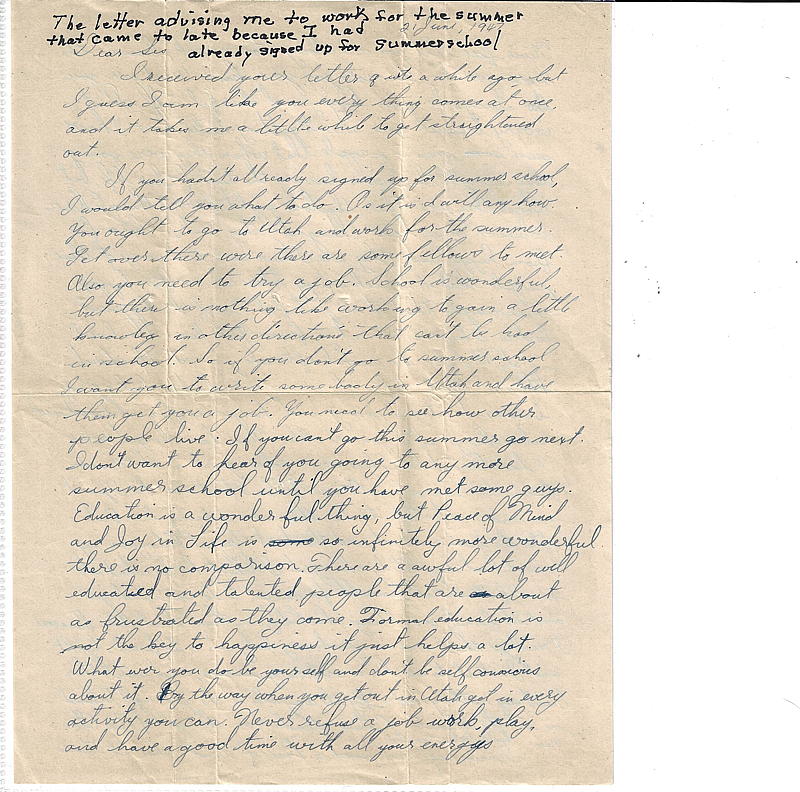 The letter advising me to work for the summer
that came to late because I had
already signed up for Summerschool
21 June,
Dear Sis
I received your letter quite a while ago, but
I guess I am like you every thing comes at once,
and it takes me a little while to get straightened
out.
If you hadn't allready signed up for summer school,
I would tell you what to do. As it is I will any how.
You ought to go to Utah and work for the summer.
Get over there were there are some fellows to met.
Also you need to try a job. School is wonderful,
but there is nothing like working to gain a little
in other directions that can't be had
in school. So if you don't go to summer school
I want you to write some body in Utah and have
them get you a job. You need to see how other
people live. If you cant go this summer go next.
I don't want to hear of you going to any more
summer school until you have met some guys.
Education is a wonderful thing, but Peace of Mind
and Joy in Life is some so infinitely more wonderful
there is no comparison. There are a awful lot of well
educated and talented people that are about
as frustrated as they come. Formal education is
not the key to happiness it just helps a lot.
What ever you do be yourself and don't be self
about it. By the way when you get out in Utah get in every
activity you can. Never refuse a job work, play,
and have a good time with all your energys